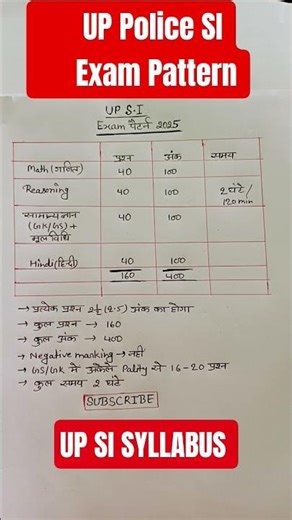 UP Police SI
Exam Pattern
UP S.I
Exam पैटर्न 2025
प्रश्न अंक समय
Math (गणित) 40 100
Reasoning 40 100 2 घंटे/
120 min
सामान्य ज्ञान 40 100
(GK/GS) +
मूलविधि
Hindi (हिन्दी) 40 100
160 400
→ प्रत्येक प्रश्न 2½ (2.5) अंक का होगा
→ कुल प्रश्न → 160
→ कुल अंक → 400
→ Negative marking → नहीं
→ GS/GK में अकेले Pality से 16-20 प्रश्न
→ कुल समय 2 घंटे
SUBSCRIBE
UP SI SYLLABUS